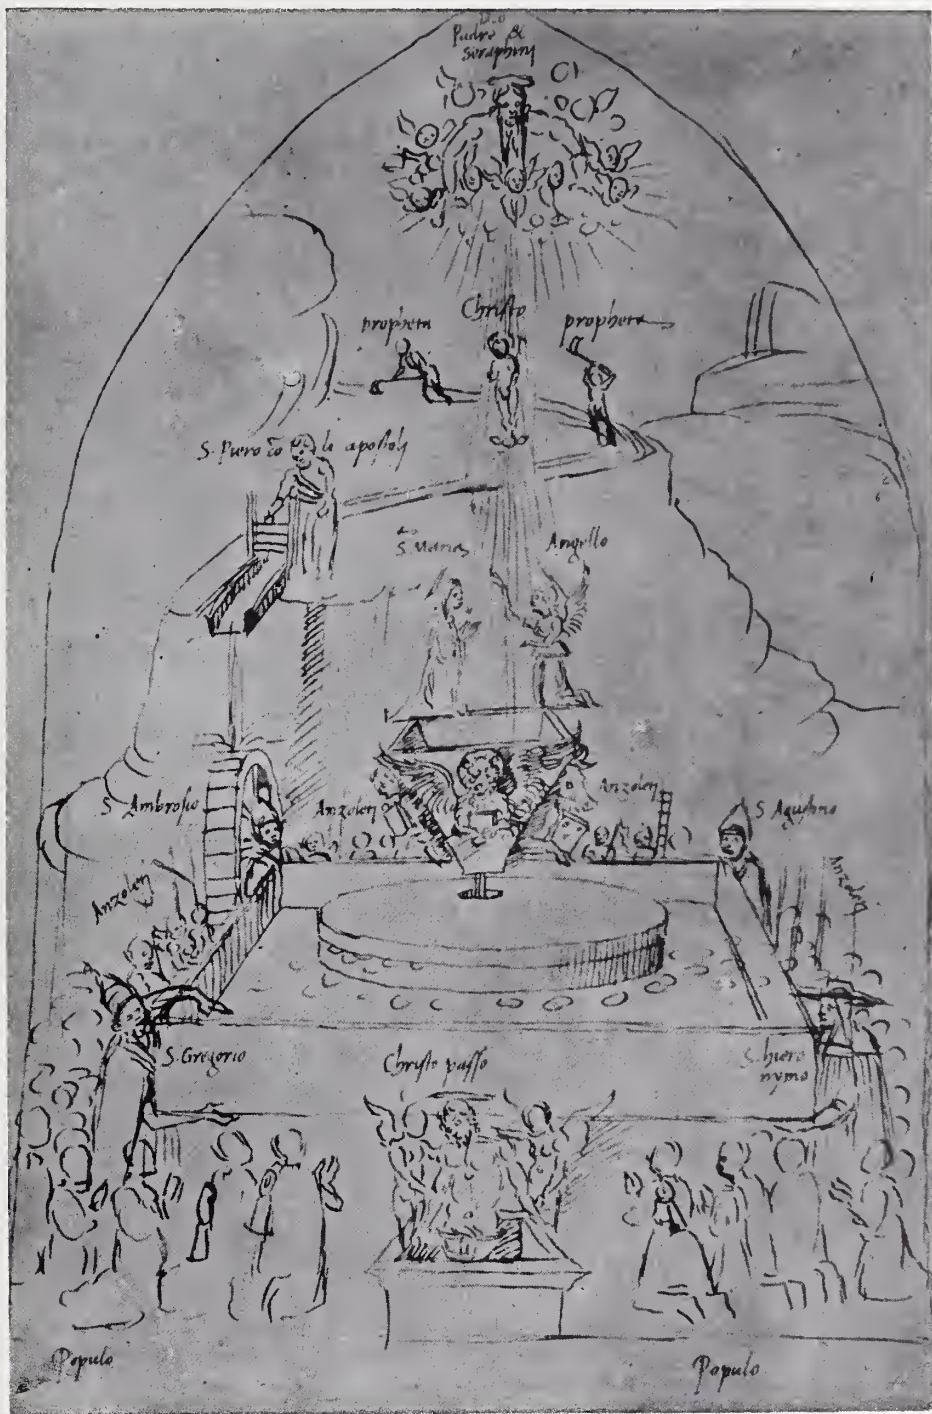 Dio
Padre &
Seraphinj
Christo
propheta
propheta
S. Piero cō li apostolj
Sta Maria
Angello
S. Ambrosio
Anzolenj
Anzolenj
S. Agustino
Anzolenj
Anzolenj
S. Gregorio
Christo passo
S. hiero
nymo
Populo
Populo